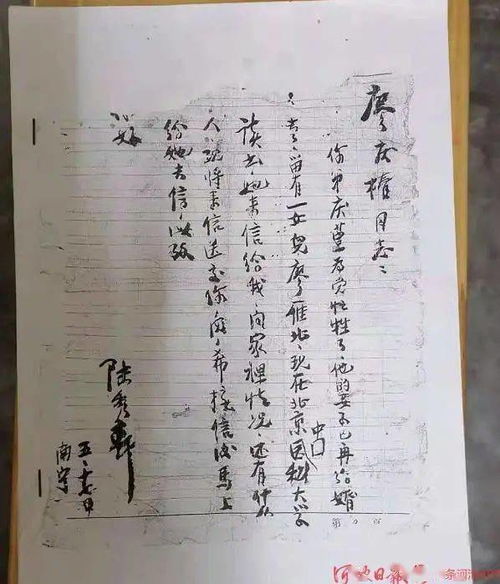 廖庆楷同志：
你弟庆 为党牺牲了，他的妻子已再结婚
去了，留有一女儿廖雁北，现在北京中口医科大学
读书，她来信给我，问家裡情况，还有什么
人，现将来信送交你阅，希接信后马上
给她去信，此致
敬
陆秀轩
五、
南宁
河池日报